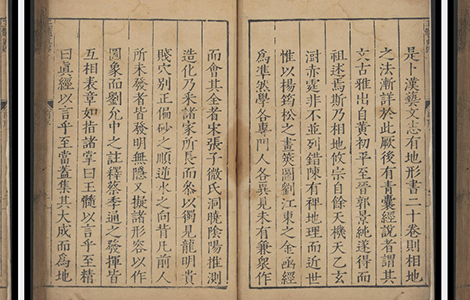 是卜漢藝文志有地形書二十卷則相地
之法漸詳於此厥後有青囊經說者謂其
文古雅出自黄初平至晉郭景純遂得而
祖述焉斯乃相地攸宗自餘天機天乙玄
澍赤霆非不並列錯陳有裨地理而近世
惟以楊筠松之畫筴圖劉江東之金函經
為準然學各專門人各異見未有兼衆作
而會其全者宋張子微氏洞曉陰陽推測
造化乃采諸家所長而條以獨見龍明貴
賤穴别正偏砂之順逆水之向背凡前人
所未發者皆發明無隱又擬諸形容以作
圖象而劉允中之註釋蔡季通之發揮皆
互相表章如指諸掌曰玉髓以言乎至精
曰眞經以言乎至當蓋集其大成而為地